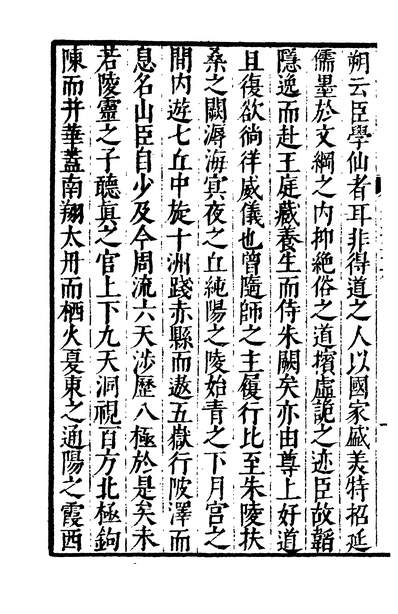 朔云臣學仙者耳非得道之人以國家盛美特招延
儒墨於文綱之内抑絶俗之道擯虛詭之迹臣故韜
隱逸而赴王庭藏養生而侍朱闕矣亦由尊上好道
且復欲徜徉威儀也曾隨師之主履行比至朱陵扶
桑之闕溽海冥夜之丘純陽之陵始青之下月宮之
間内遊七丘中旋十洲踐赤縣而遨五嶽行陂澤而
息名山臣自少及今周流六天渉歷八極於是矣未
若陵靈之子聽眞之官上下九天洞視百方北極鉤
陳而并華蓋南翔太丹而栖火戞東之通陽之霞西